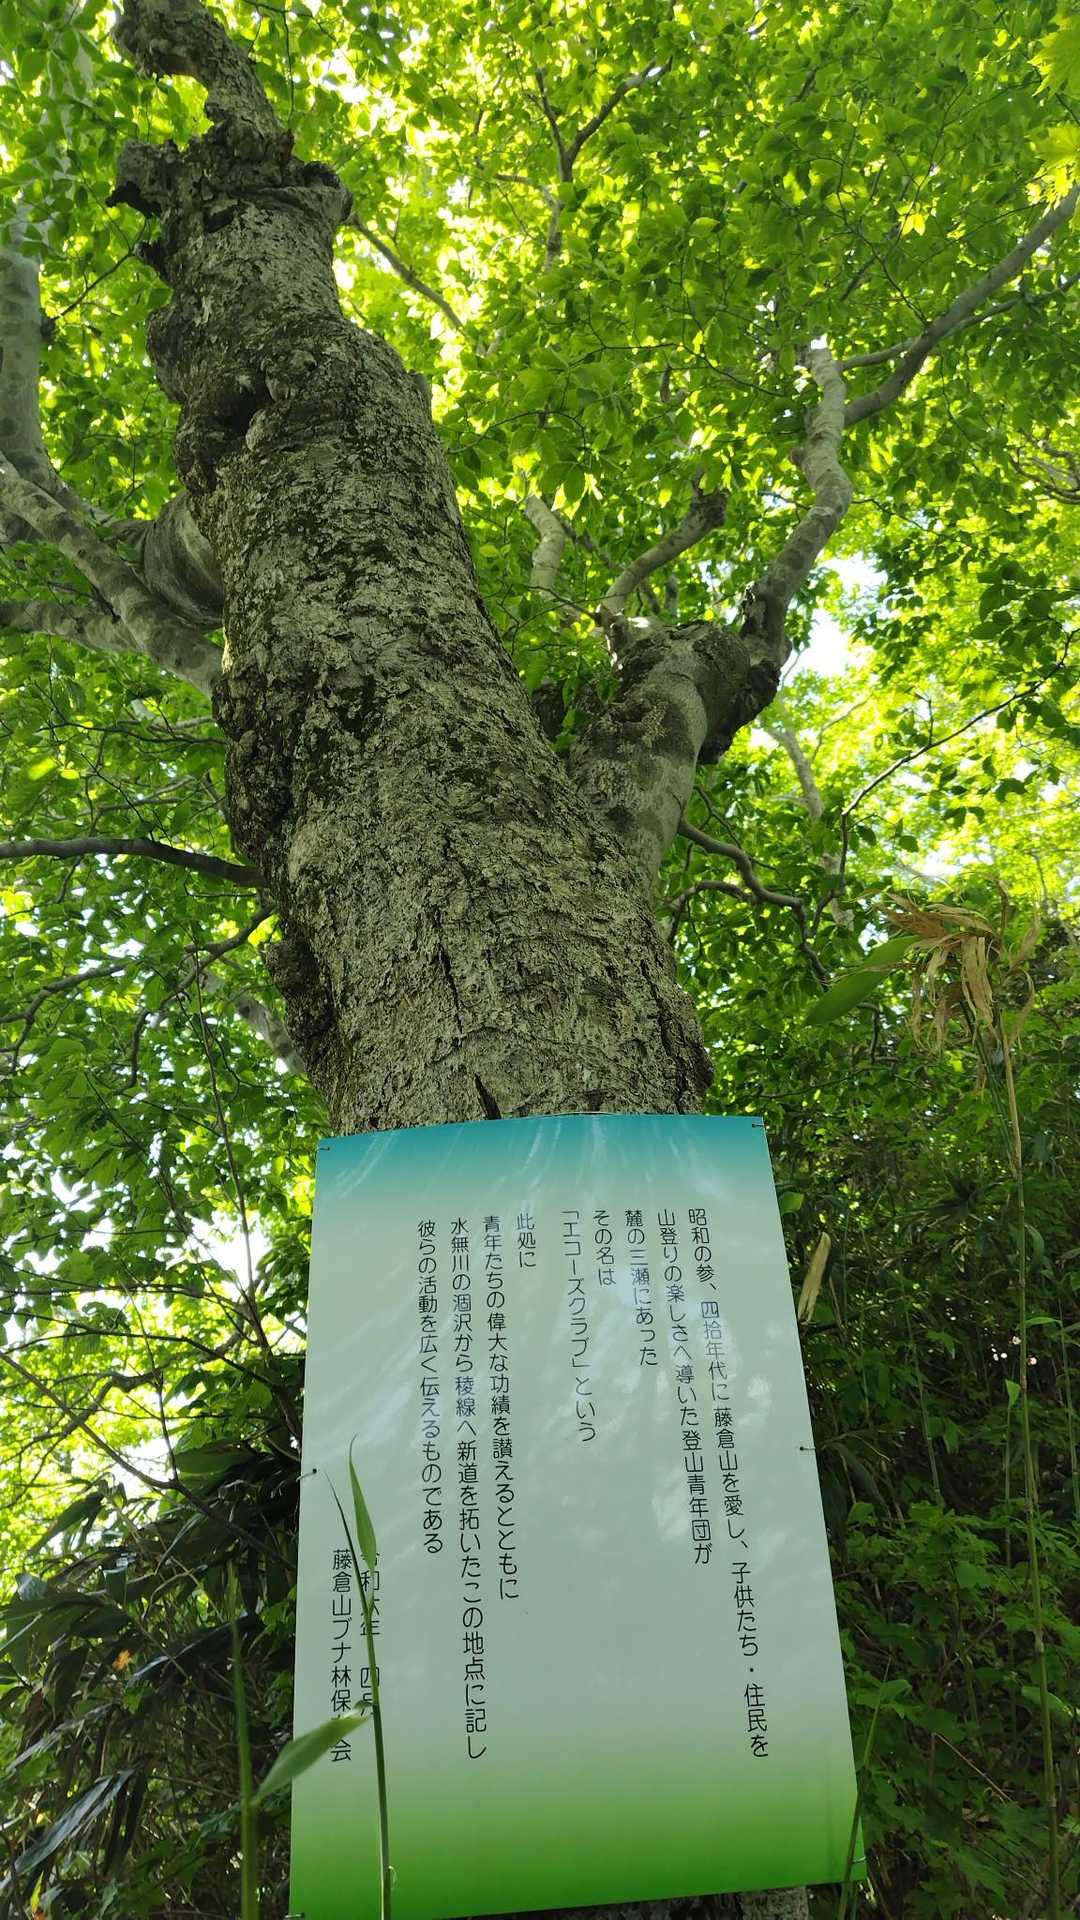 昭和の参、四拾年代に藤倉山を愛し、子供たち・住民を
山登りの楽しさへ導いた登山青年団が
麓の三瀬にあった
その名は
「エコーズクラブ」という
此処に
青年たちの偉大な功績を讃えるとともに
水無川の涸沢から稜線へ新道を拓いたこの地点に記し
彼らの活動を広く伝えるものである
和六年 四月
藤倉山ブナ林保 会